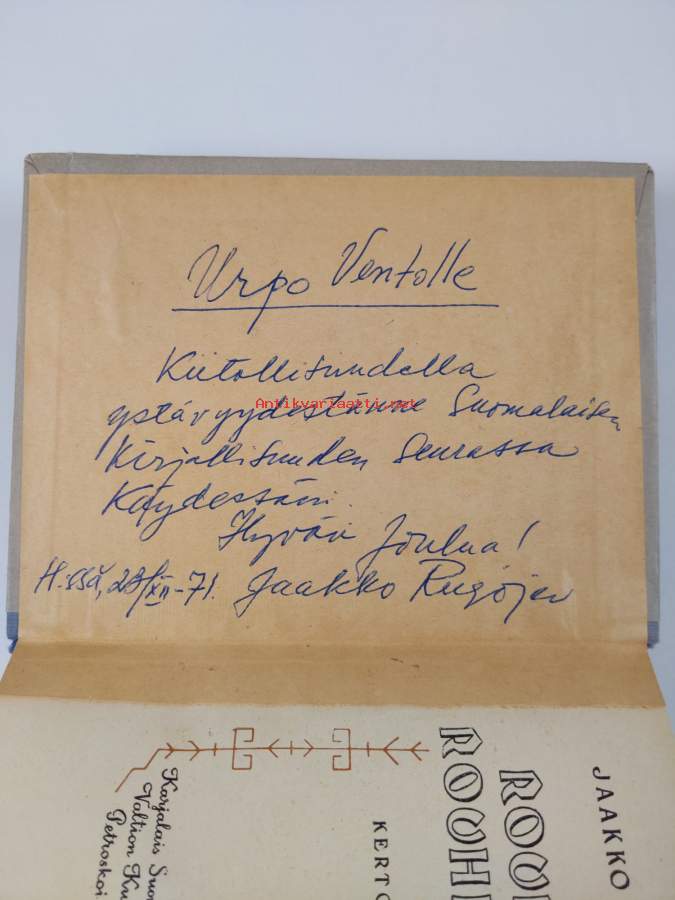 Urpo Ventolle
Kiitollisuudella
ystävyydestänne Suomalaisen
Kirjallisuuden Seurassa
Käydessäni.
Hyvää Joulua!
H:ssä, 23/XII-71. Jaakko Rugojev
Antikvariaatti.net
JAAKKO
KERTO
Karjalais Suo
Valtion Ku
Petroskoi